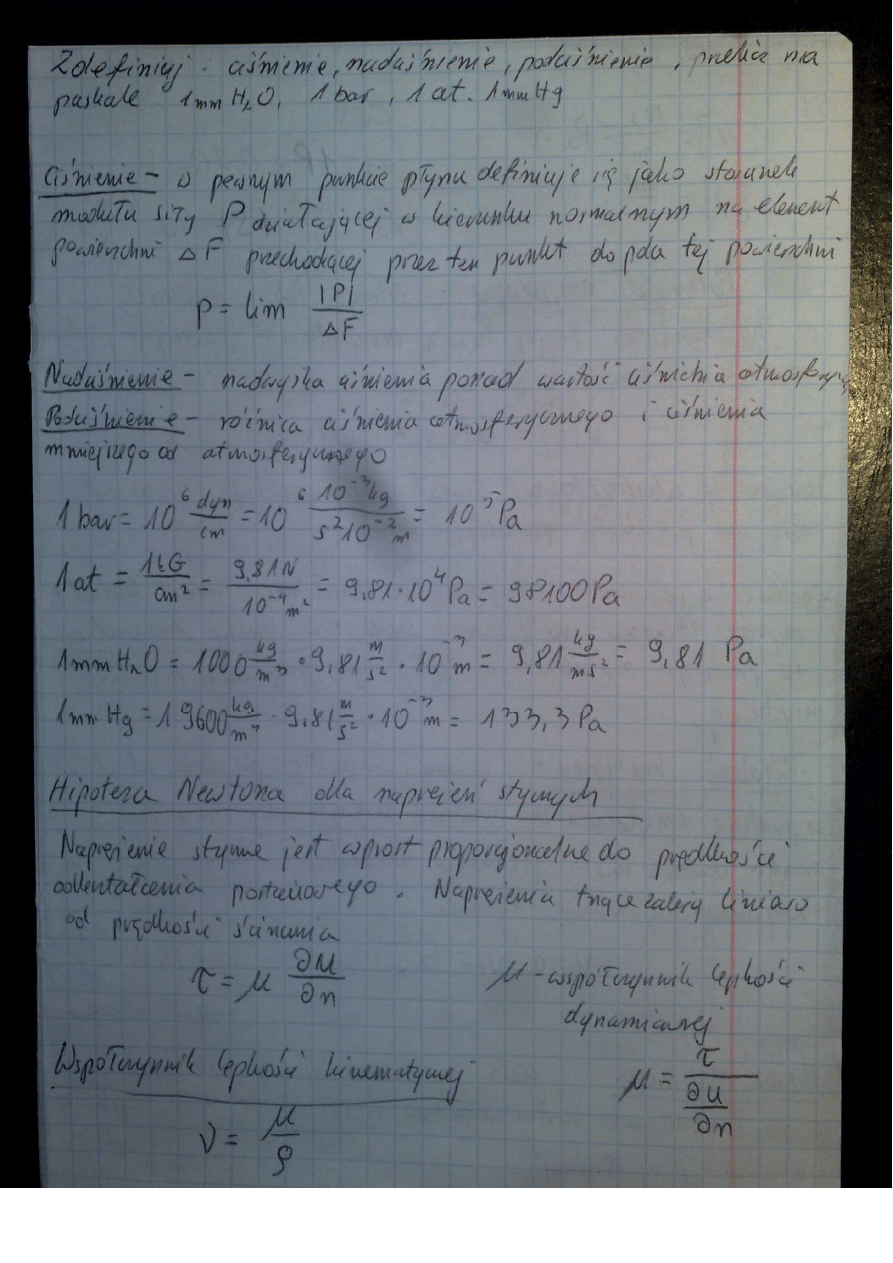 Zdefiniuj: ciśnienie, nadciśnienie, podciśnienie, przelicz na
paskale 1mm H₂O, 1 bar, 1 at. 1mm Hg
Ciśnienie – w pewnym punkcie płynu definiuje się jako stosunek
modułu siły P działającej w kierunku normalnym na element
powierzchni ΔF przechodzącej przez ten punkt do pola tej powierzchni
p = lim |P| / ΔF
Nadciśnienie – nadwyżka ciśnienia ponad wartość ciśnienia atmosferycz
Podciśnienie – różnica ciśnienia atmosferycznego i ciśnienia
mniejszego od atmosferycznego
1 bar = 10⁶ dyn/cm = 10⁶ 10⁻³kg / s²10⁻²m = 10⁵ Pa
1 at = 1kG/cm² = 9,81N / 10⁻⁴m² = 9,81·10⁴ Pa = 98100 Pa
1mm H₂O = 1000 kg/m³ · 9,81 m/s² · 10⁻³ m = 9,81 kg/ms² = 9,81 Pa
1mm Hg = 13600 kg/m³ · 9,81 m/s² · 10⁻³ m = 133,3 Pa
Hipoteza Newtona dla naprężeń stycznych
Naprężenie styczne jest wprost proporcjonalne do prędkości
odkształcenia postaciowego. Naprężenia tnące zależą liniowo
od prędkości ścinania
τ = μ ∂u/∂n
μ – współczynnik lepkości
dynamicznej
μ = τ / (∂u/∂n)
Współczynnik lepkości kinematycznej
ν = μ/ρ